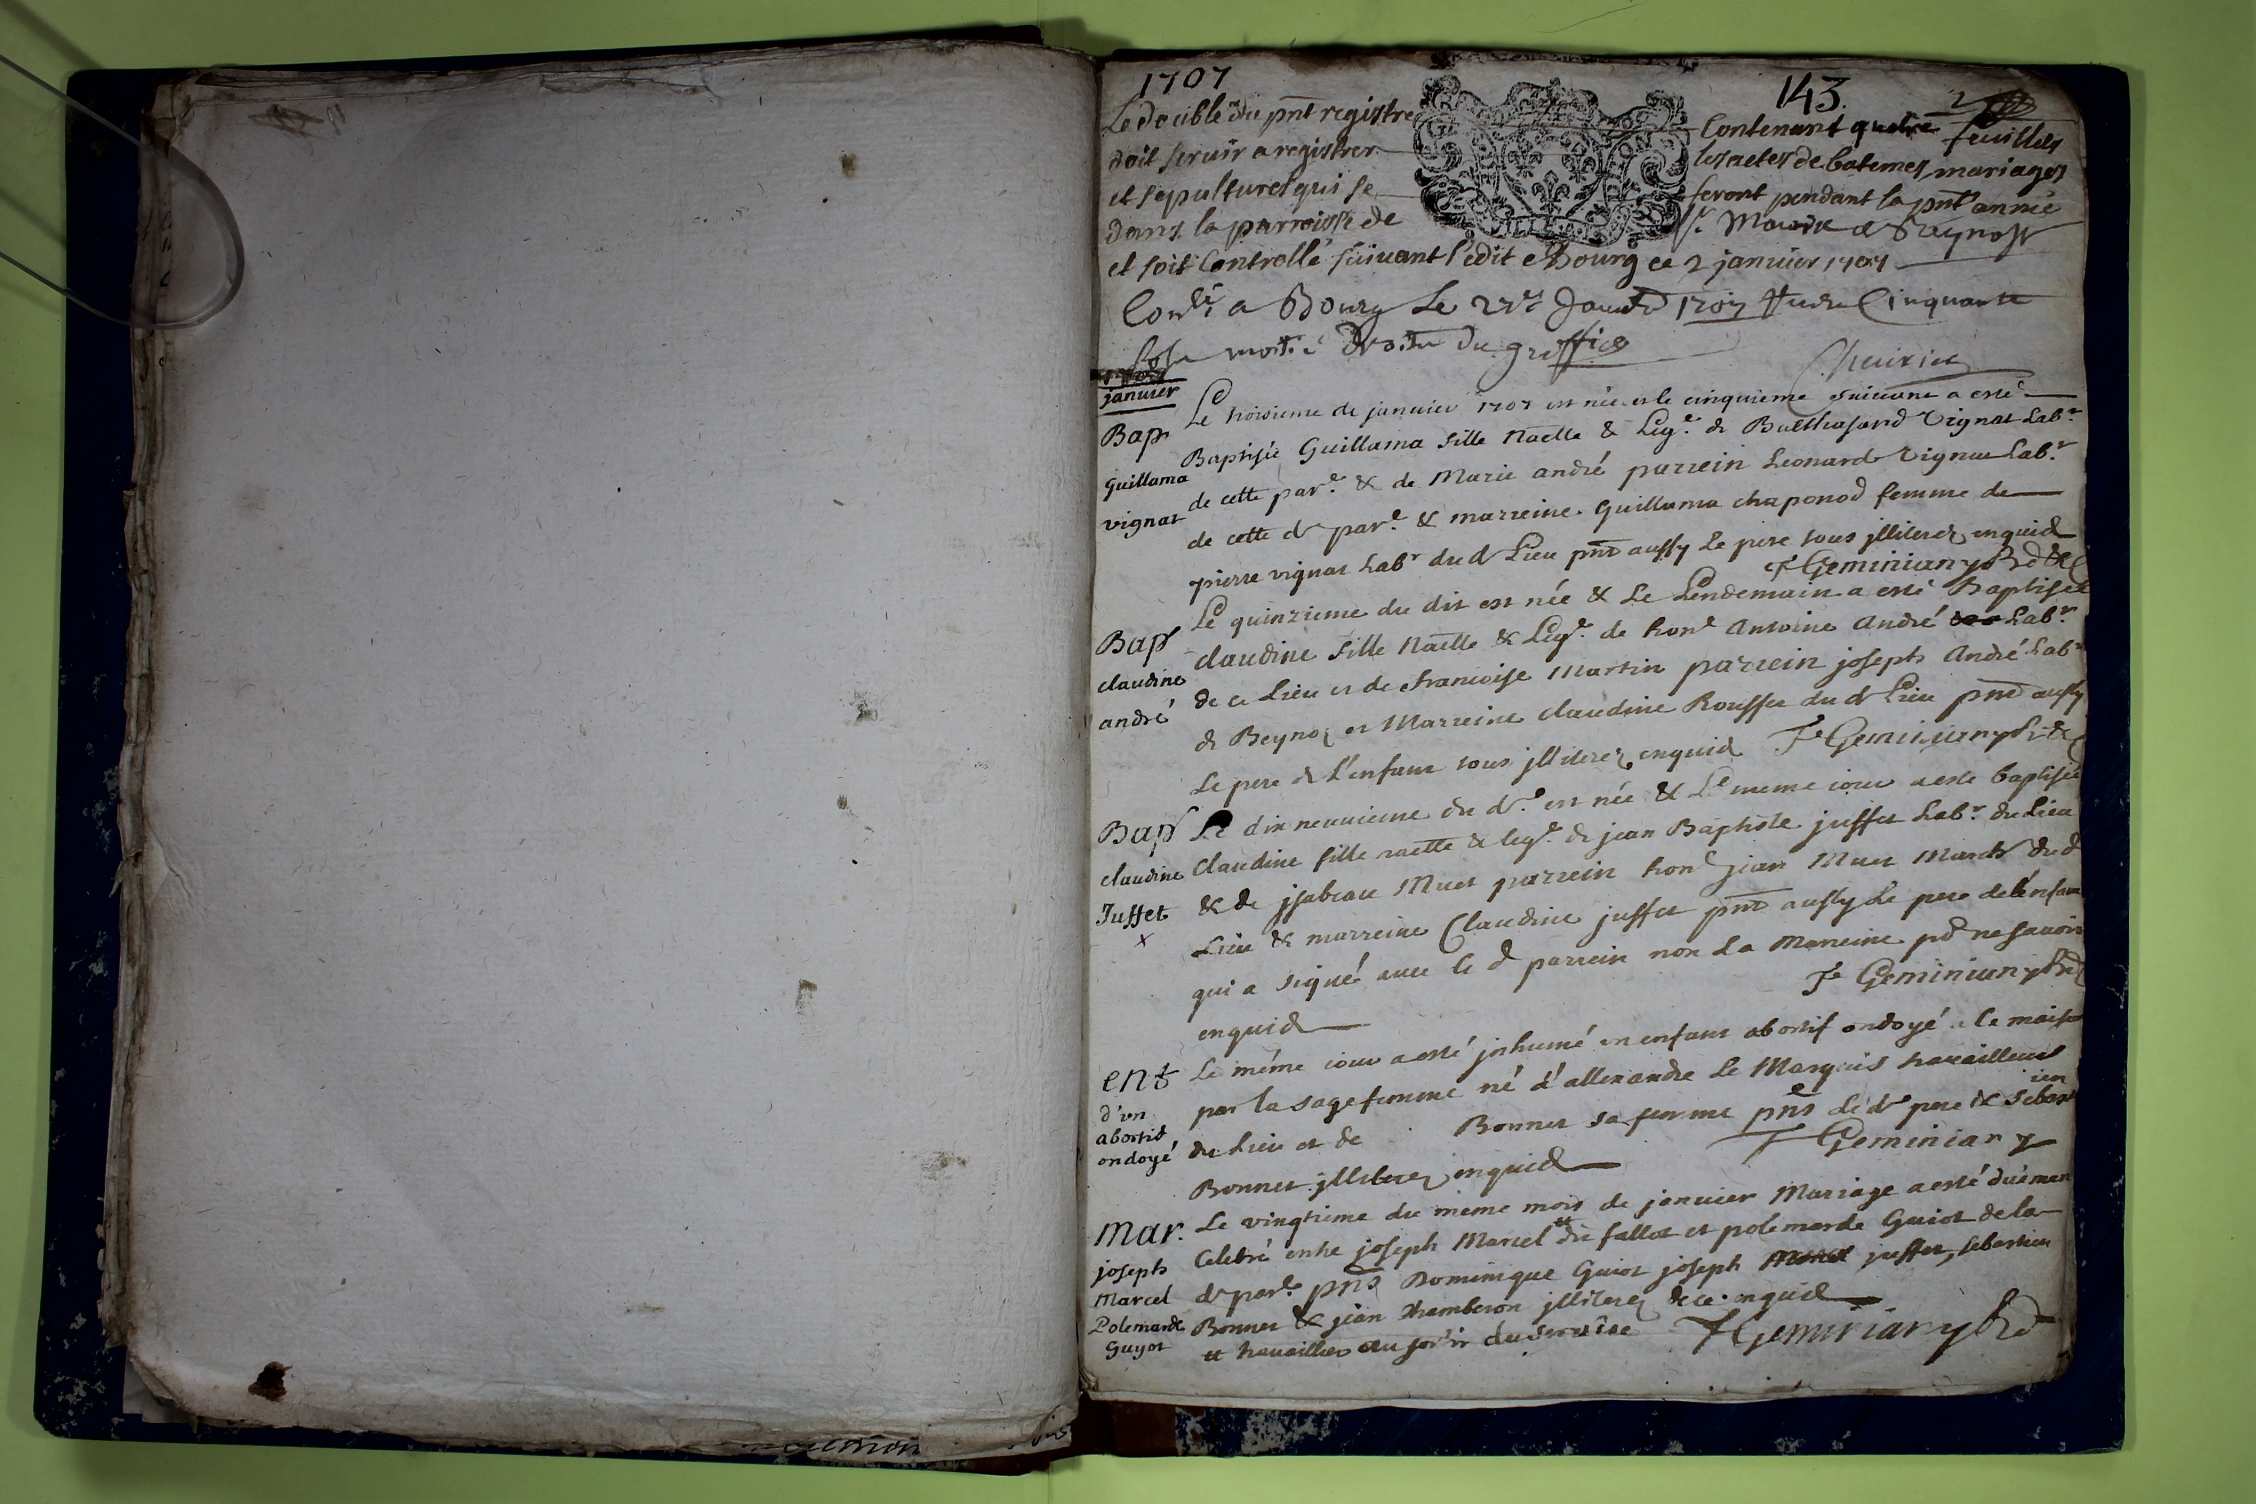 1707
143.
2
Le double du pnt registre Contenant quatre feuillets
doit servir a registrer les actes de batemes, mariages
et sepultures qui se feront pendant la pnte année
dans la parroisse de St Maurice de Baynost
et soit Controllé suivant l'édit a Bourg ce 2 janvier 1707
Conlé a Bourg Le 27e Janvr 1707 Cinquante
Sols moitié Droitz du greffice
Cheurier
janvier
Bap
Guillama
vignat
Le troisieme de janvier 1707 est née et le cinquieme suivant a esté
Baptisée Guillama fille Naelle & Legᵉ. de Balthasard Vignat Labʳ
de cette parᵉ. & de Marie andré parrein Leonard Vignat Labʳ.
de cette dᵉ parᵉ. & marreine Guillama chaponod femme de
pierre vignat Labʳ du d Lieu pnt aussy Le pere tous jlliterez enquid
F Geminiany
Bap
claudine
andré
Le quinzieme du dit est née & Le Lendemain a esté Baptisée
claudine fille Naelle & Legᵉ. de honᵉ Antoine André Labʳ.
de ce Lieu et de francoise Martin parrein joseph André Labʳ
de Beynoz et Marreine claudine Rousset du d Lieu pnt aussy
Le pere de L'enfant tous jlliterez enquid Fe Geminiany
Bap
claudine
Juffet
x
Le dix neuvieme du dᵉ. est née & Le meme jour a este baptisée
Claudine fille naelle & legᵉ. de jean Baptiste juffet Labʳ. du Lieu
& de jsabeau Muet parrein hon jean Muet March du d
Lieu & marreine Claudine juffet pnt aussy Le pere de l'enfant
qui a signé avec le d parrein non La Marreine pʳ ne savoir
enquid
Fe Geminiany
ent
d'un
abortif
ondoyé
Le méme jour a esté jnhumé un enfant abortif ondoyé a la maison
par la sage femme né d'allexandre Le Marquis travailleur
du Lieu et de Bonnet sa femme pns Le dᵉ pere & Sebastien
Bonnet jlliterez enquid F Geminiany
mar.
joseph
Marcel
Polemarde
Guyot
Le vingtieme du meme mois de janvier Mariage a esté duemen
Celebré entre joseph Marcel tt dit fallot et polemarde Guiot de la
dᵉ parᵉ. pns Dominique Guiot joseph juffet, sebastien
Bonnet & jean Chamberon jlliterez de ce enquid
tt travaillieur au
F Geminiany